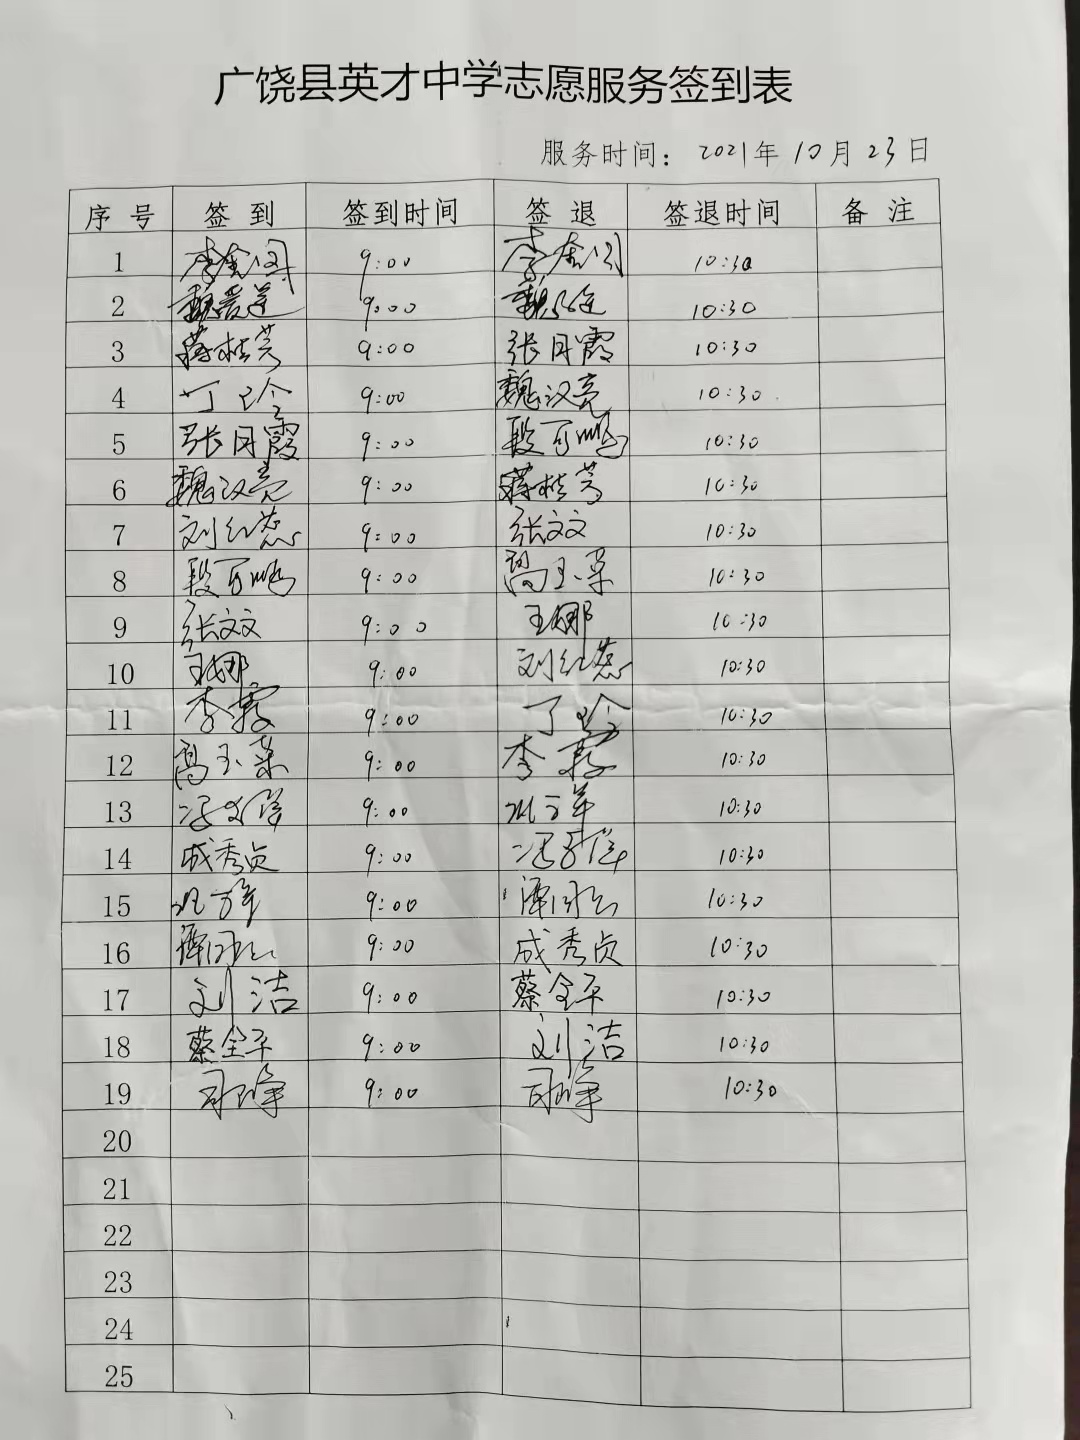 广饶县英才中学志愿服务签到表
服务时间：2021年10月23日
序号 签到 签到时间 签退 签退时间 备注
1 李金阁 9:00 李金阁 10:30
2 魏爱莲 9:00 魏 10:30
3 蒋桂芳 9:00 张月霞 10:30
4 丁玲 9:00 魏汉亮 10:30
5 张月霞 9:00 段可鹏 10:30
6 魏汉亮 9:00 蒋桂芳 10:30
7 刘红蕊 9:00 张文文 10:30
8 段可鹏 9:00 高玉荣 10:30
9 张文文 9:00 王娜 10:30
10 王娜 9:00 刘红蕊 10:30
11 李霖 9:00 丁玲 10:30
12 高玉荣 9:00 李霖 10:30
13 冯 9:00 10:30
14 成秀贞 9:00 冯 10:30
15 9:00 10:30
16 9:00 成秀贞 10:30
17 刘洁 9:00 蔡全平 10:30
18 蔡全平 9:00 刘洁 10:30
19 9:00 10:30
20
21
22
23
24
25